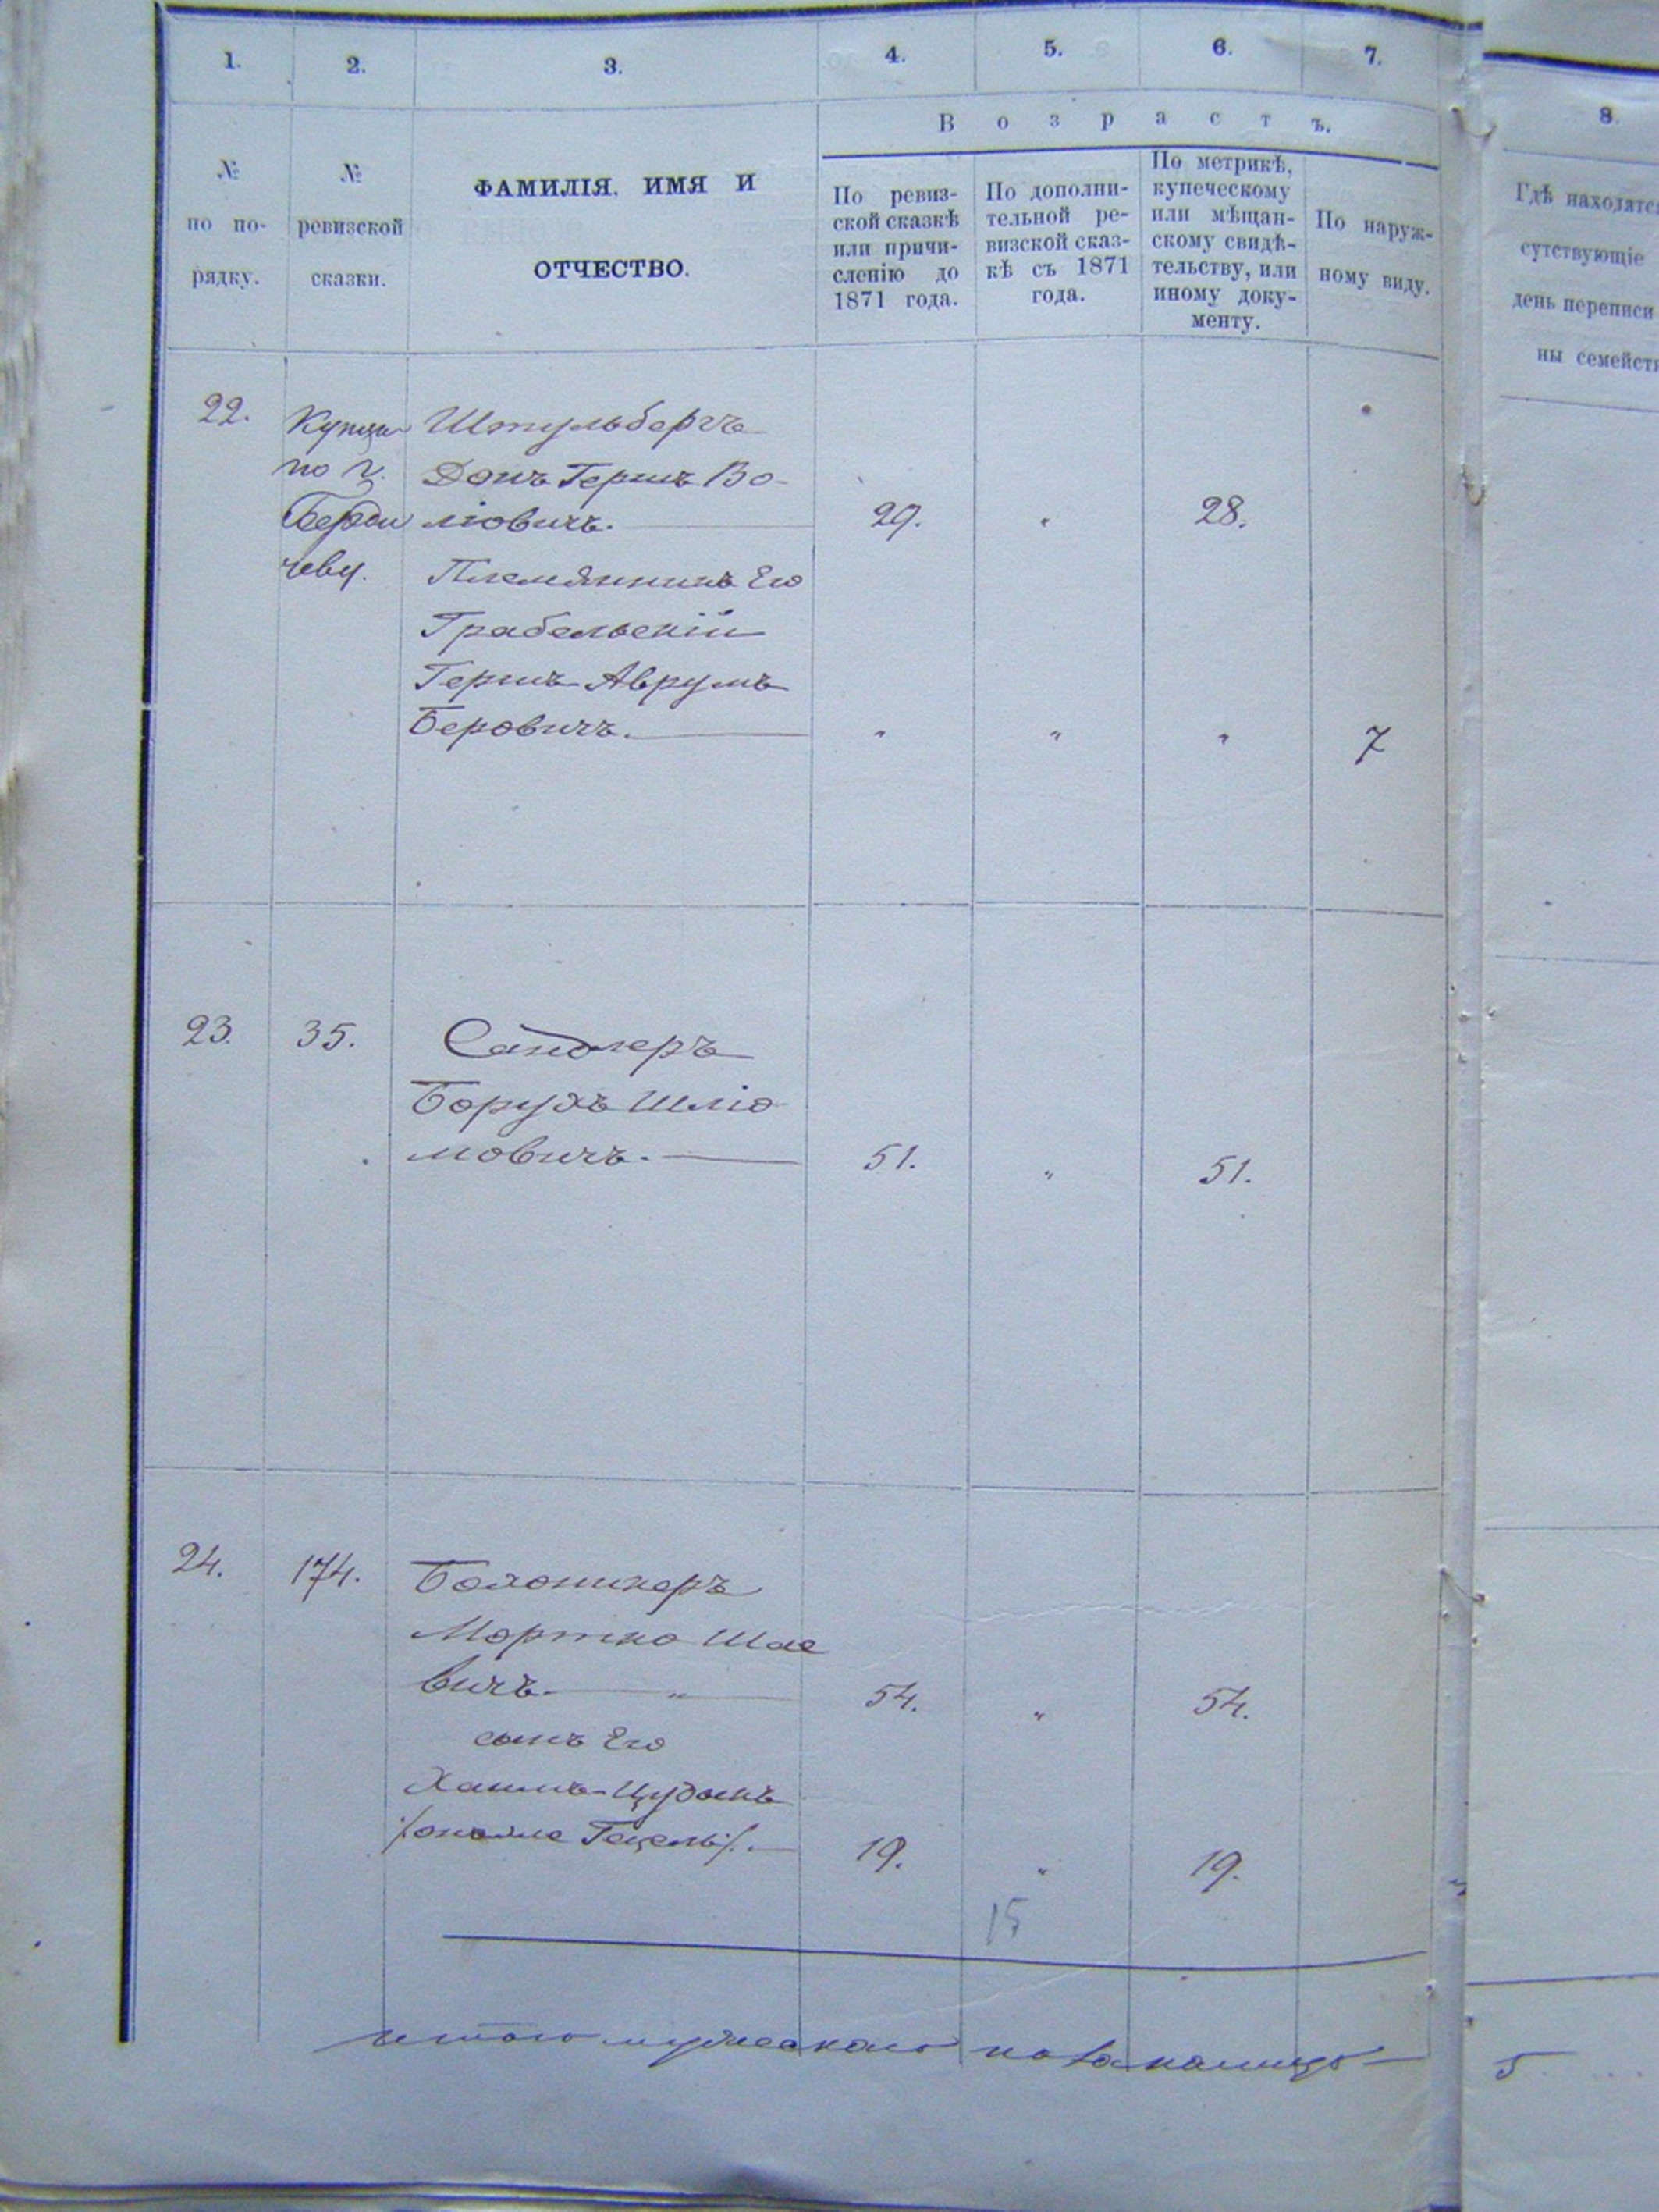 1. 2. 3. 4. 5. 6. 7.
В о з р а с т ъ.
№ по по-рядку.
№ ревизской сказки.
ФАМИЛІЯ, ИМЯ И
ОТЧЕСТВО.
По ревиз-
ской сказкѣ
или причи-
сленію до
1871 года.
По дополни-
тельной ре-
визской сказ-
кѣ съ 1871
года.
По метрикѣ,
купеческому
или мѣщан-
скому свидѣ-
тельству, или
иному доку-
менту.
По наруж-
ному виду.
22.
Купцы
по г.
Берди
чеву.
Штульбергъ
Донъ Гершъ Во-
ліовичъ. 29. " 28.
Племянникъ Его
Грабельскій
Гершъ Аврумъ
Беровичъ. " " " 7
23. 35. Сандлеръ
Борухъ Шліо
мовичъ. 51. " 51.
24. 174.
Мортко Шае
вичъ. " 54. " 54.
сынъ Его
Хаимъ-
Гецель/. 19. " 19.
15
итого мужескаго пола налицо
8.
Гдѣ находятся
сутствующіе
день переписи
ны семейств
5